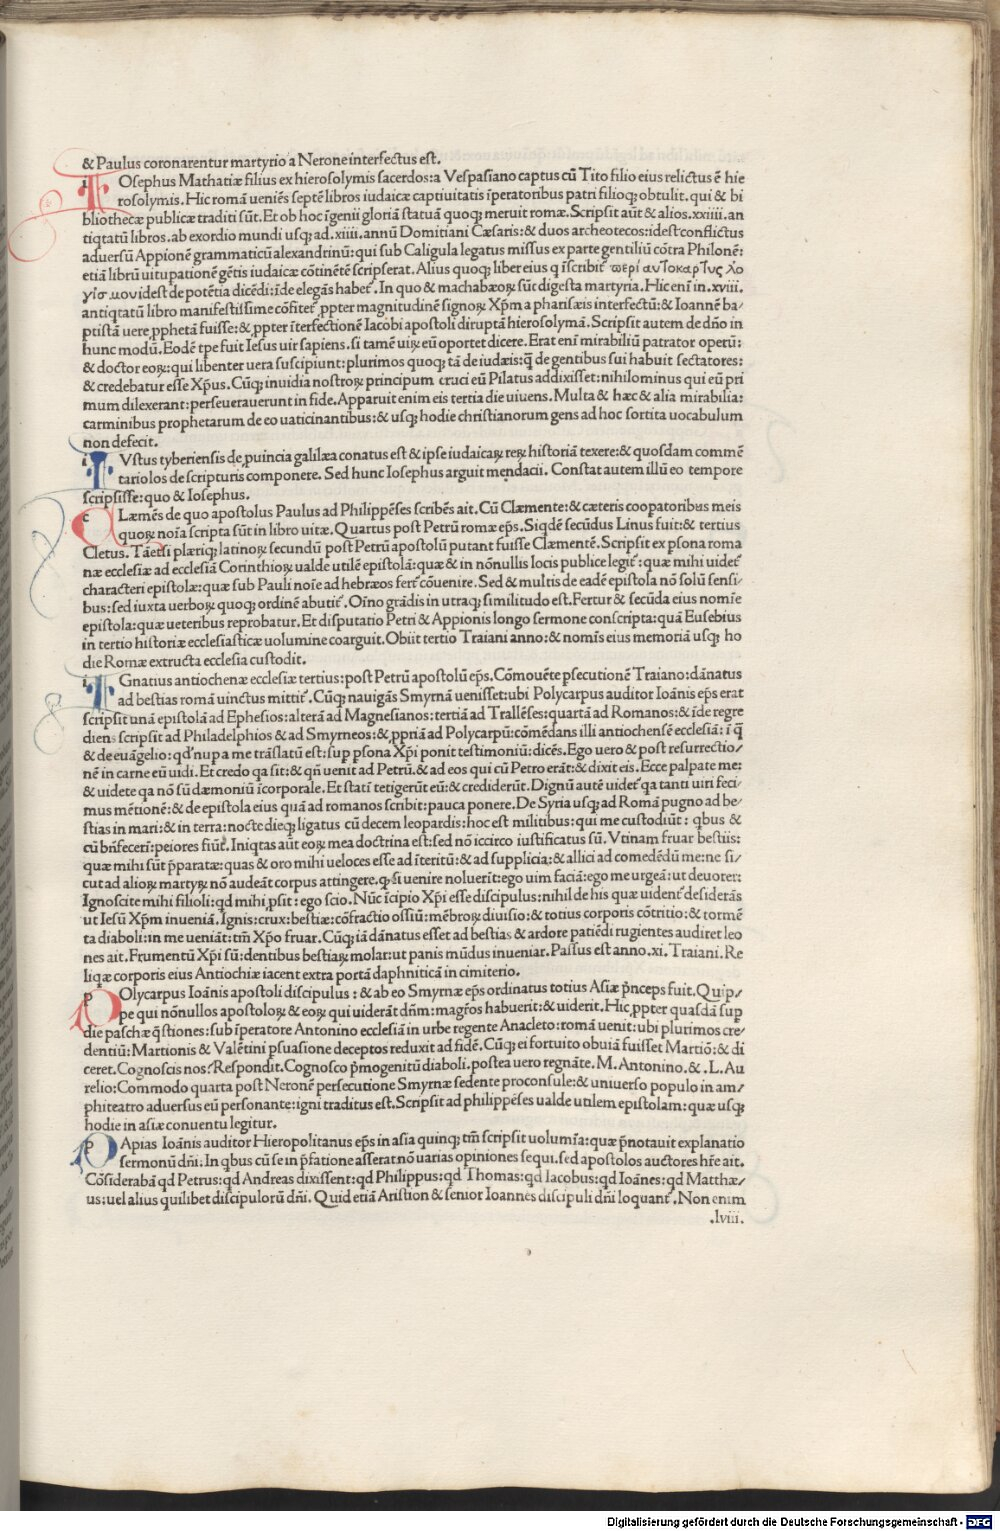 & Paulus coronarentur martyrio a Nerone interfectus est.
IOsephus Mathatiæ filius ex hierosolymis sacerdos:a Vespasiano captus cū Tito filio eius relictus ē hie
rosolymis. Hic romā ueniēs septē libros iudaicæ captiuitatis īperatoribus patri filioqꝫ obtulit. qui & bi
bliothecæ publicæ traditi sūt. Et ob hoc īgenii gloriā statuā quoqꝫ meruit romæ. Scripsit aūt & alios.xxiiii.an
tiqtatū libros. ab exordio mundi usqꝫ ad.xiiii.annū Domitiani Cæsaris:& duos archeotecos:idest conflictus
aduersū Appionē grammaticū alexandrinū:qui sub Caligula legatus missus ex parte gentiliū cōtra Philonē:
etiā librū uituperationē gētis iudaicæ cōtinētē scripserat. Alius quoqꝫ liber eius q īscribit̄ περί αυτοκαρτυς λο
γισμου idest de potētia dicēdi:īde elegās habet̄. In quo & machabæoꝝ sūt digesta martyria. Hic enī in.xviii.
antiqtatū libro manifestissime cōfitet̄ ꝓpter magnitudinē signoꝝ Xp̄m a pharisæis interfectū:& Ioannē ba/
ptistā uere ꝓphetā fuisse:& ꝓpter īterfectionē Iacobi apostoli diruptā hierosolymā. Scripsit autem de dn̄o in
hunc modū. Eodē tp̄e fuit Iesus uir sapiens. si tamē uiꝝ eū oportet dicere. Erat enī mirabiliū patrator operū:
& doctor eoꝝ:qui libenter uera suscipiunt:plurimos quoqꝫ tā de iudæis:q̄ de gentibus sui habuit sectatores:
& credebatur esse Xp̄us. Cūqꝫ inuidia nostroꝝ principum cruci eū Pilatus addixisset:nihilominus qui eū pri
mum dilexerant:perseuerauerunt in fide. Apparuit enim eis tertia die uiuens. Multa & hæc & alia mirabilia:
carminibus prophetarum de eo uaticinantibus:& usqꝫ hodie christianorum gens ad hoc sortita uocabulum
non defecit.
IVstus tyberiensis de ꝓuincia galilæa conatus est & ipse iudaicaꝝ reꝝ historiā texere:& quosdam commē
tariolos de scripturis componere. Sed hunc Iosephus arguit mendacii. Constat autem illū eo tempore
scripsisse:quo & Iosephus.
CLæmēs de quo apostolus Paulus ad Philippēses scribēs ait. Cū Clæmente:& cæteris coopatoribus meis
quoꝝ noīa scripta sūt in libro uitæ. Quartus post Petrū romæ ep̄s. Siqdē secūdus Linus fuit:& tertius
Cletus. Tāetsi plæriqꝫ latinoꝝ secundū post Petrū apostolū putant fuisse Clæmentē. Scripsit ex ꝑsona roma
næ ecclesiæ ad ecclesiā Corinthioꝝ ualde utilē epistolā:quæ & in nōnullis locis publice legit̄:quæ mihi uidet̄
characteri epistolæ:quæ sub Pauli noīe ad hebræos fert̄ cōuenire. Sed & multis de eadē epistola nō solū sensi/
bus:sed iuxta uerboꝝ quoqꝫ ordinē abutit̄. Oīno grādis in utraqꝫ similitudo est. Fertur & secūda eius nomīe
epistola:quæ ueteribus reprobatur. Et disputatio Petri & Appionis longo sermone conscripta:quā Eusebius
in tertio historiæ ecclesiasticæ uolumine coarguit. Obiit tertio Traiani anno:& nomīs eius memoriā usqꝫ ho
die Romæ extructa ecclesia custodit.
IGnatius antiochenæ ecclesiæ tertius:post Petrū apostolū ep̄s. Cōmouēte ꝑsecutionē Traiano:dānatus
ad bestias romā uinctus mittit̄. Cūqꝫ nauigās Smyrnā uenisset:ubi Polycarpus auditor Ioānis ep̄s erat
scripsit unā epistolā ad Ephesios:alterā ad Magnesianos:tertiā ad Trallēses:quartā ad Romanos:& īde regre
diens scripsit ad Philadelphios & ad Smyrneos:& ꝓpriā ad Polycarpū:cōmēdans illi antiochensē ecclesiā:ī q̄
& de euāgelio:qd̓ nuꝑ a me trāslatū est:sup ꝑsona Xp̄i ponit testimoniū:dicēs. Ego uero & post resurrectio/
nē in carne eū uidi. Et credo qa sit:& qn̄ uenit ad Petrū.& ad eos qui cū Petro erāt:& dixit eis. Ecce palpate me:
& uidete qa nō sū dæmoniū īcorporale. Et statī tetigerūt eū:& crediderūt. Dignū autē uidet̄ qa tanti uiri feci/
mus mētionē:& de epistola eius quā ad romanos scribit:pauca ponere. De Syria usqꝫ ad Romā pugno ad be/
stias in mari:& in terra:nocte dieqꝫ ligatus cū decem leopardis:hoc est militibus:qui me custodiūt: qbus &
cū bn̄feceri:peiores fiūt. Iniqtas aūt eoꝝ mea doctrina est:sed nō iccirco iustificatus sū. Vtinam fruar bestiis:
quæ mihi sūt p̄paratæ:quas & oro mihi ueloces esse ad īteritū:& ad supplicia:& allici ad comedēdū me:ne si/
cut ad alioꝝ martyꝝ nō audeāt corpus attingere. ꝙ si uenire noluerīt:ego uim faciā:ego me urgeā:ut deuorer:
Ignoscite mihi filioli:qd mihi ꝓsit:ego scio. Nūc īcipio Xp̄i esse discipulus:nihil de his quæ uident̄ desiderās
ut Iesū Xp̄m inueniā. Ignis:crux:bestiæ:cōfractio ossiū:mēbroꝝ diuisio:& totius corporis cōtritio:& tormē
ta diaboli:in me ueniāt:tm̄ Xp̄o fruar. Cūqꝫ iā dānatus esset ad bestias & ardore patiēdi rugientes audiret leo
nes ait. Frumentū Xp̄i sū:dentibus bestiaꝝ molar:ut panis mūdus inueniar. Passus est anno.xi. Traiani. Re
liqæ corporis eius Antiochiæ iacent extra portā daphniticā in cimiterio.
POlycarpus Ioānis apostoli discipulus:& ab eo Smyrnæ ep̄s ordinatus totius Asiæ p̄nceps fuit. Quip/
pe qui nōnullos apostoloꝝ & eoꝝ qui uiderāt dn̄m:magr̄os habuerit:& uiderit. Hic ꝓpter quasdā sup
die paschæ q̄stiones:sub īperatore Antonino ecclesiā in urbe regente Anacleto:romā uenit:ubi plurimos cre/
dentiū:Martionis & Valētini ꝑsuasione deceptos reduxit ad fidē. Cūqꝫ ei fortuito obuiā fuisset Martiō:& di
ceret. Cognoscis nos? Respondit. Cognosco p̄mogenitū diaboli. postea uero regnāte. M. Antonino.&.L.Au
relio:Commodo quarta post Neronē persecutione Smyrnæ sedente proconsule:& uniuerso populo in am/
phiteatro aduersus eū personante:igni traditus est. Scripsit ad philippēses ualde utilem epistolam:quæ usqꝫ
hodie in asiæ conuentu legitur.
PApias Ioānis auditor Hieropolitanus ep̄s in asia quinqꝫ tm̄ scripsit uolumīa:quæ p̄notauit explanatio
sermonū dn̄i. In qbus cū se in p̄fatione asserat nō uarias opiniones sequi.sed apostolos auctores hr̄e ait.
Cōsiderabā qd Petrus:qd Andreas dixissent:qd Philippus:qd Thomas:qd Iacobus:qd Ioānes:qd Matthæ/
us:uel alius quilibet discipulorū dn̄i. Quid etiā Aristion & senior Ioannes discipuli dn̄i loquant̄. Non enim
.lviii.
Digitalisierung gefördert durch die Deutsche Forschungsgemeinschaft - DFG